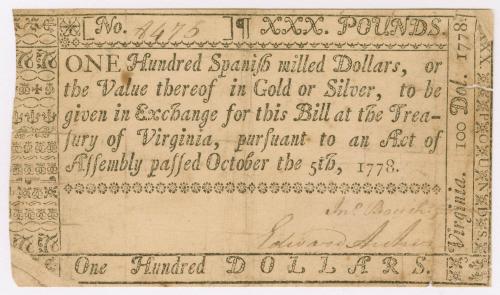 [No. 8478 ]¶ XXX. POUNDS.
ONE Hundred Spaniſh milled Dollars, or
the Value thereof in Gold or Silver, to be
given in Exchange for this Bill at the Trea-
ſury of Virginia, purſuant to an Act of
Aſſembly paſſed October the 5th, 1778.
Jno. Boush
Edward Archer
One Hundred DOLLARS.
Virginia. 100 Dol. 1778.
XXX POUNDS